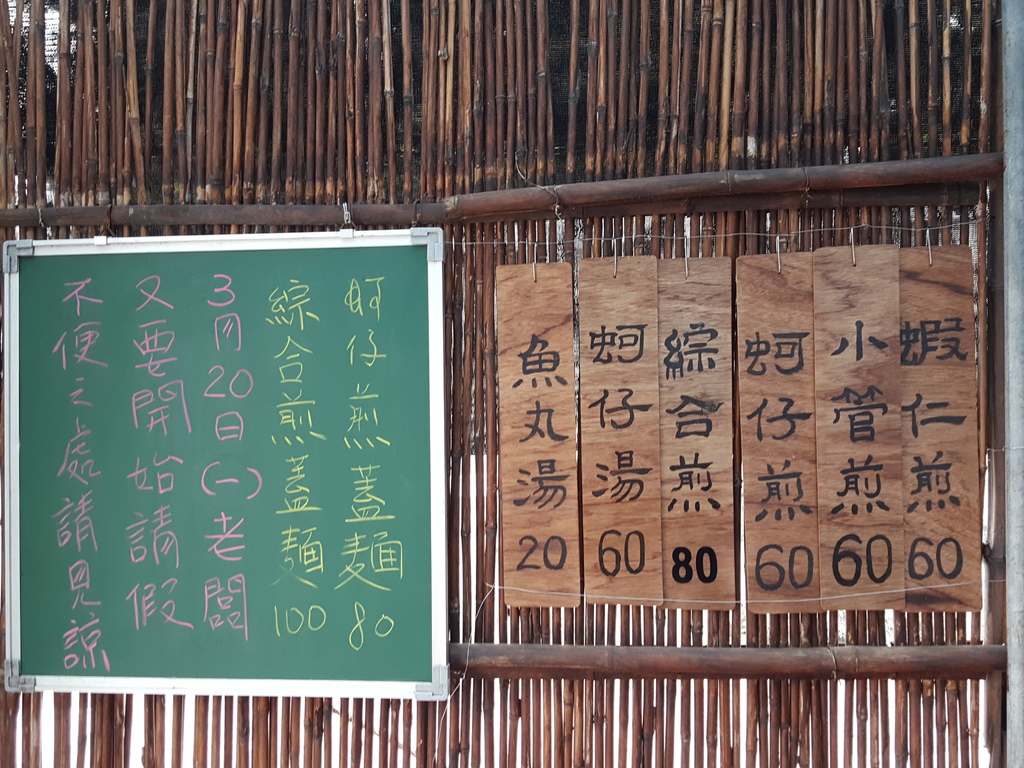 蚵仔煎蓋麵 80
綜合煎蓋麵 100
3月20日(一)老闆
又要開始請假
不便之處請見諒
蝦仁煎 60
小管煎 60
蚵仔煎 60
綜合煎 80
蚵仔湯 60
魚丸湯 20